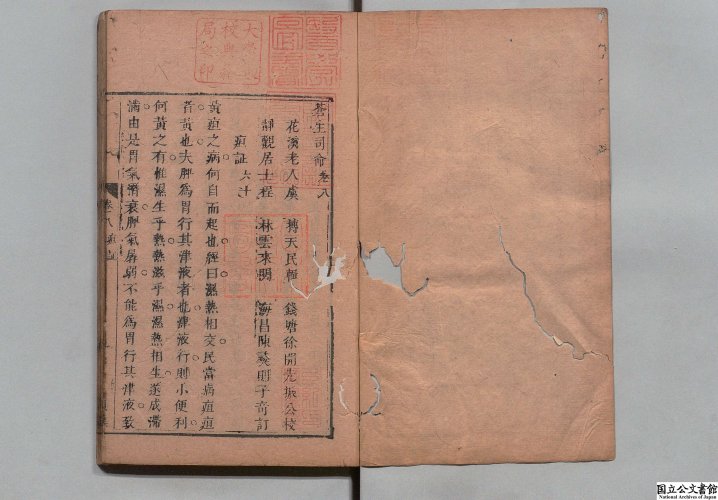 蒼生司命卷八
花溪老人虞 摶天民輯 錢塘徐開先振公校
靜觀居士程 林雲來閱 海昌陳 則子奇訂
疸証六十
黃疸之病何自而起也經曰濕熱相交民當病疸疸
者黃也夫脾為胃行其津液者也津液行則小便利
何黃之有惟濕生乎熱熱滋乎濕濕熱相生遂成滯
滿由是胃氣漸衰脾氣孱弱不能為胃行其津液致
卷八 疸証
国立公文書館
National Archives of Japan